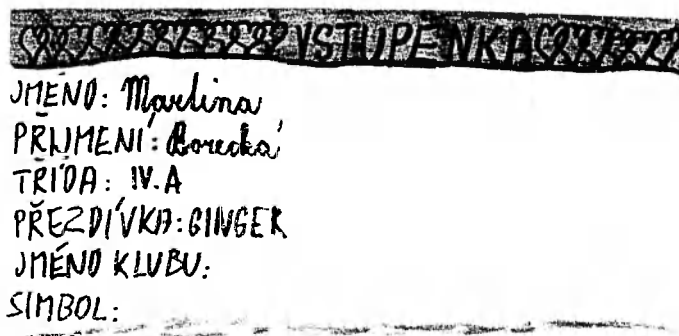 VSTUPENKA
JMÉNO: Martina
PŘIJMENÍ: Borecká
TŘÍDA: IV.A
PŘEZDÍVKA: GINGER
JMÉNO KLUBU:
SIMBOL: